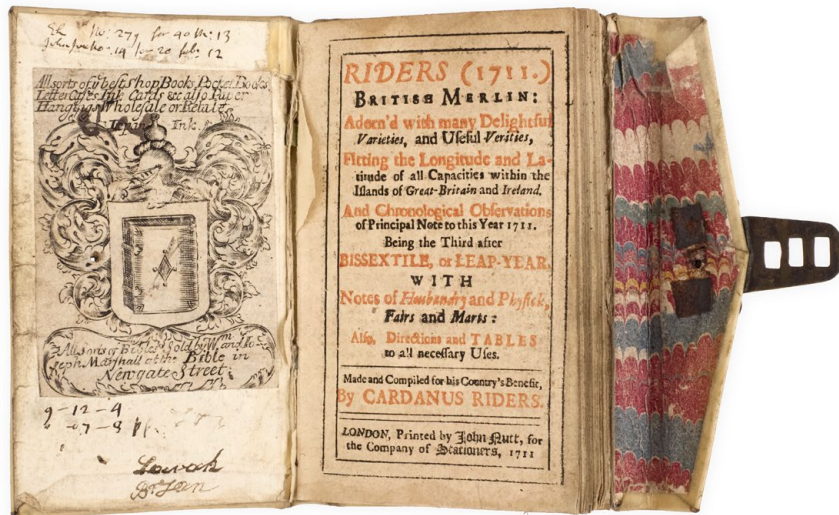 for 40 : 13
14 for 20 : 12
All sorts of yͤ best Shop Books, Pocket Books
Letter Cases Ink Cards &c also Paper
Hangings Wholesale or Retale
Ink.
All sorts of Bibles Sold by Wm and Jo
seph Marshall at the Bible in
Newgate Street.
9-12-4
-07-8
RIDERS (1711.)
BRITISH MERLIN:
Adorn'd with many Delightful
Varieties, and Useful Verities,
Fitting the Longitude and La-
titude of all Capacities within the
Islands of Great-Britain and Ireland.
And Chronological Observations
of Principal Note to this Year 1711.
Being the Third after
BISSEXTILE, or LEAP-YEAR,
WITH
Notes of Husbandry and Physick,
Fairs and Marts:
Also, Directions and TABLES
to all necessary Uses.
Made and Compiled for his Country's Benefit,
By CARDANUS RIDERS.
LONDON, Printed by John Nutt, for
the Company of Stationers, 1711